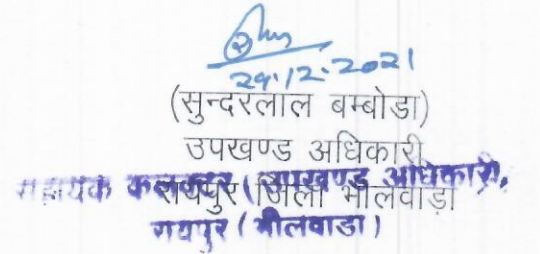 29.12.2021
(सुन्दरलाल बम्बोडा)
उपखण्ड अधिकारी
रायपुर जिला भीलवाड़ा
सहायक कलक्टर (उपखण्ड अधिकारी,
रायपुर (भीलवाडा)